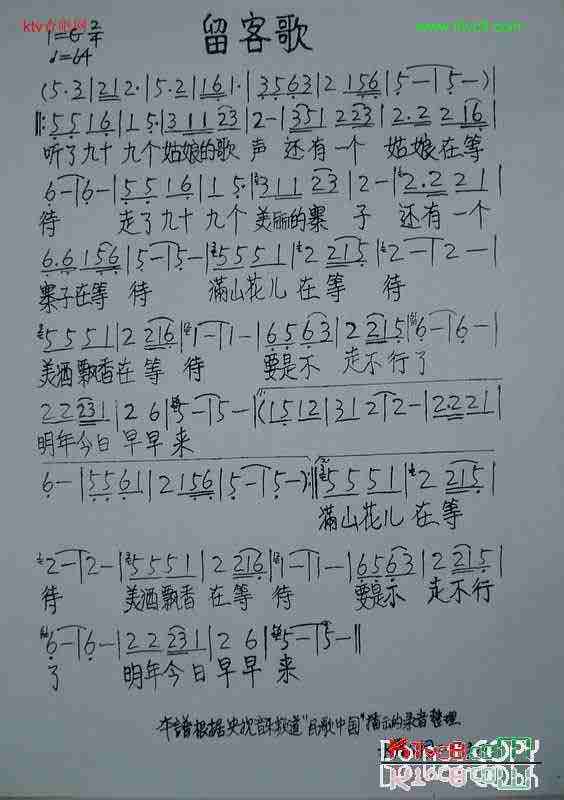 留客歌
1=G 2/4
♩=64
(5·3|2 1 2·|5·2|1 1 6 1·|3 5 6 3|2 1 5 6|5—|5—)|
‖:5 5 1 6|1 5·|3 1 1 2 3|2—|3 5 1 2 2 3|2·2 2 1 6|
听了九十九个姑娘的歌 声 还有一个 姑娘在等
6—|6—|5 5 1 6|1 5·|3 1 1 2 3|2—|2·2 2 1|
待 走了九十九个美丽的寨 子 还有一个
6·6 1 5 6|5—|5—|5 5 5 1|2 2 1 5|2—|2—|
寨子在等 待 满山花儿 在等 待
5 5 5 1|2 2 1 6|1—|1—|6 5 6 3|2 2 1 5|6—|6—|
美酒飘香在等 待 要是不 走不行了
2 2 2 3 1|2 6|5—|5—|(1 5 1 2|3 1|2—|2—|2·2 2 1|
明年今日早早 来
6—|5 5 6 1|2 1 5 6|5—|5—):‖5 5 5 1|2 2 1 5|
满山花儿 在等
2—|2—|5 5 5 1|2 2 1 6|1—|1—|6 5 6 3|2 2 1 5|
待 美酒飘香 在等 待 要是不 走不行
6—|6—|2 2 2 3 1|2 6|5—|5—‖
了 明年今日早早 来
本谱根据央视音乐频道"民歌中国"播示的录音整理
DO NOT COPY